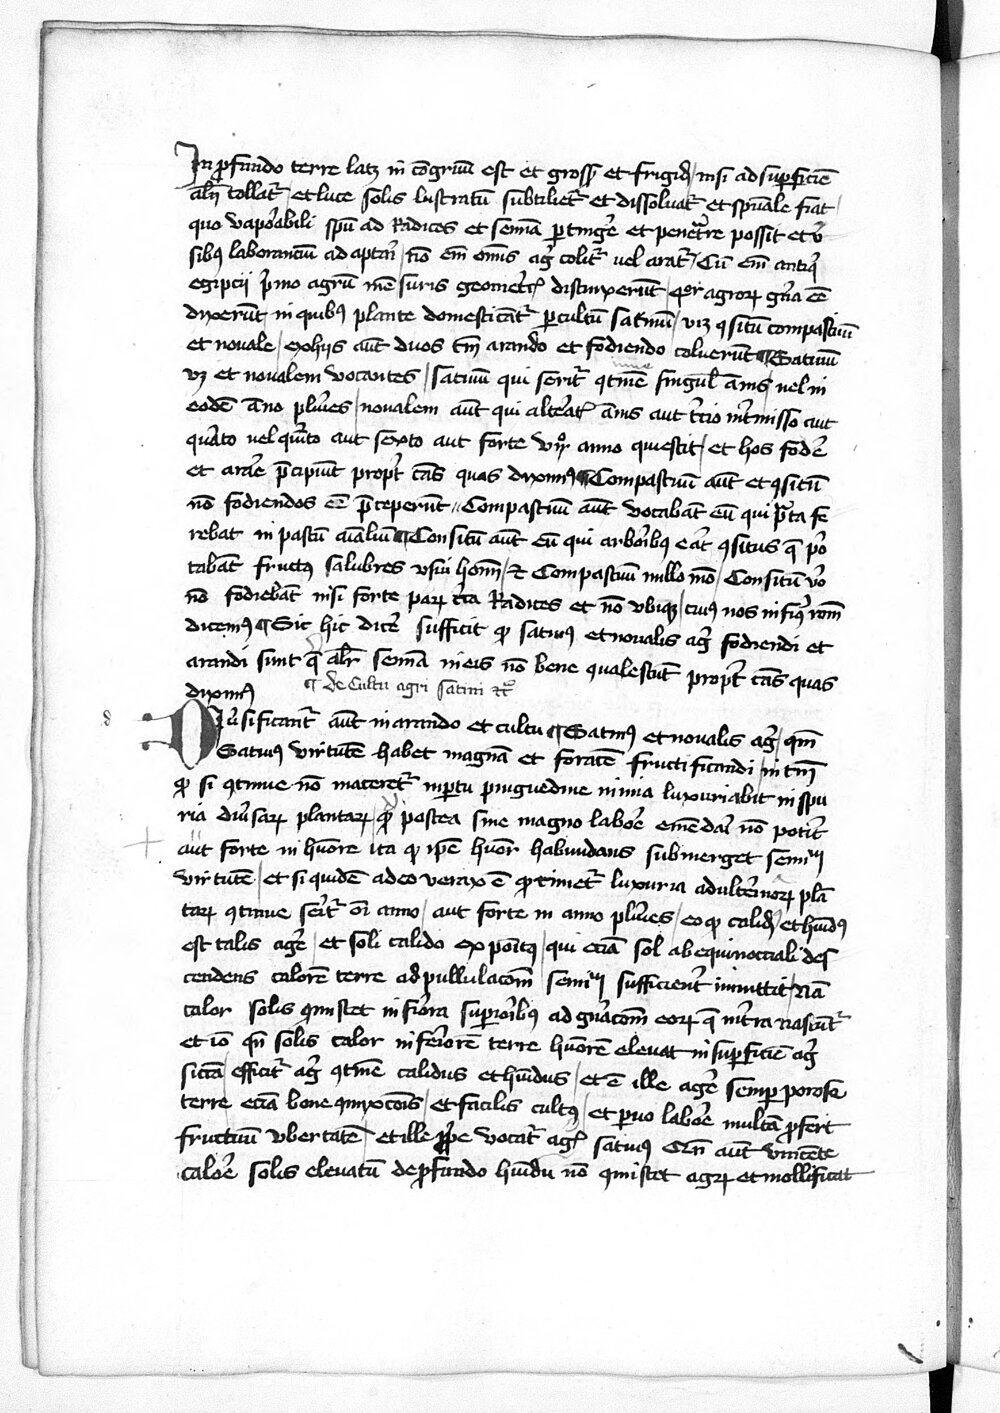 In profundo terre latz in cōgruū est et gross9 et frigid9 / nisi ad supficiē
aliqñ tollat͛ et luce solis lustratū subtiliet͛ et dissoluat͛ et spūale fiat /
quo vaporabili spū ad Radices et semīa ptinge͛ et penetrare possit et v
sibꝰ laborantiū ad aptari / nō em̄ om̄is ag͛ colit͛ vel arat͛ / Cū em̄ antiq
egiptii pmo agrū mēsuris geometcis distinxerūt / qͦr agroꝝ gña eē
dixerūt / in quibꝰ plante domesticāt͛ p cultū / satiuū / viz ꝯsitū compascuū
et nouale / ex hiis aūt duos tm̄ arando et fodiendo coluerūt ¶ Satiuū
vz et nouālem vocantes / satiuū qui serit͛ ꝯtīue singul͛ ānis vel in
eodē āno plures / noualem aūt qui alt͛nat͛ ānis aut tcio int͛misso aut
quarto vel qunto aut sexto aut forte vijͦ anno quiescit / et hos fode͛
et arare pcipiūt propt͛ cās quas diximꝰ ¶ Compascuū aūt et ꝯsitū
nō fodiendos eē pceperūt // Compascuū aūt vocabāt eū qui prata fe
rebat in pastū aīaliū ¶ Consitū aūt eū qui arboribꝰ erat ꝯsitus q̄ por
tabāt fructꝰ salubres vsui hoīm / et Compascuū nullo mō / Consitū vͦo
nō fodiebāt nisi forte paꝝ circa Radices et nō vbiqꝫ / cuiꝰ nos in fiꝰ rōm
dicemꝰ ¶ Sic hic dice͛ sufficit ꝙ satiuꝰ et noualis ag͛ fodiendi et
arandi sunt q̄ alr̄ semīa in eis nō bene qualescūt propt͛ cās quas
diximꝰ
¶ de Cultu agri satiui etc͛
d
Diu͛sificant͛ aūt in arando et cultu ¶ Satiuꝰ et noualis ag͛ / qm̄
Satiuꝰ virtutē habet magnā et feracē fructificandi / in tm̄
ꝙ si ꝯtinue nō maceret͛ in ptu pinguedine nimia luxuriabit in spu
ria diu͛saꝝ plantaꝝ / q postea sine magno labore emēdari nō potit͛
aut forte in hūore ita ꝙ ipē hūor habundans submerget semīū
virtutē / et si quidē adeo verax ē ꝙ timet͛ luxuria adulterinoꝝ plā
taꝝ ꝯtinue serit͛ om̄i anno / aut forte in anno plures / eo ꝙ calidꝰ et hūidꝰ
est talis ager / et soli calido expositꝰ / qui eciā sol ab equinoctiali des
cendens calorē terre ad pullulacōm semīū sufficient͛ inmittit / Nā
calor solis ꝯmiscet inf͛iora sup͛ioribꝰ ad gñacōm eoꝝ q̄ in t͛ra nascūt͛
et iō qñ solis calor inferiorē terre hūorē eleuat in supficiē ag͛
siccā / efficit͛ ag͛ ꝯtīue calidus et hūidus / et ē ille age͛ semp porose
terre eciā bone ꝯmixcōnis / et facilis cultꝰ / et puo labore multā pfert
fructuū vbertatē et ille ppe vocat͛ ag͛ satiuꝰ Qñ aūt vincēte
calore solis eleuatū de pfundo hūidū nō ꝯmiscet agrū et mollificat